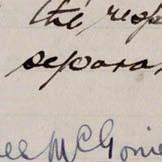 the resp
separa
ee McGoni